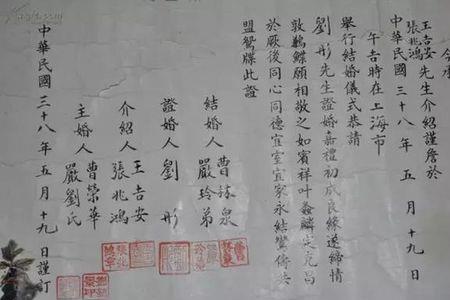 今承
王吉安
張兆鴻
先生介紹謹詹於
中華民國三十八年五月十九日
午吉時在上海市
舉行結婚儀式恭請
劉彤先生證婚嘉禮初成良緣遂締情
敦鶼鰈願相敬之如賓祥叶螽麟定克昌
於厥後同心同德宜室宜家永結鸞儔共
盟鴛牒此證
結婚人
曹 泉
嚴玲弟
證婚人 劉彤
介紹人
王吉安
張兆鴻
主婚人
曹榮華
嚴劉氏
中華民國三十八年五月十九日謹訂